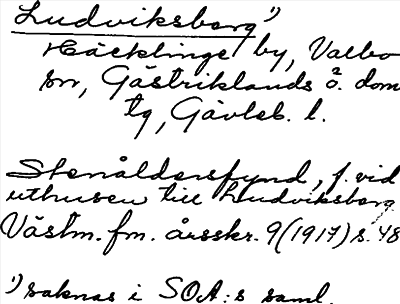 Ludviksborg¹)
Häcklinge by, Valbo
sn, Gästriklands ö. dom
tg, Gävleb. l.
Stenåldersfynd, f. vid
uthusen till Ludviksborg
Västm. fm. årsskr. 9(1917) s. 48
¹) saknas i SOA:s saml.